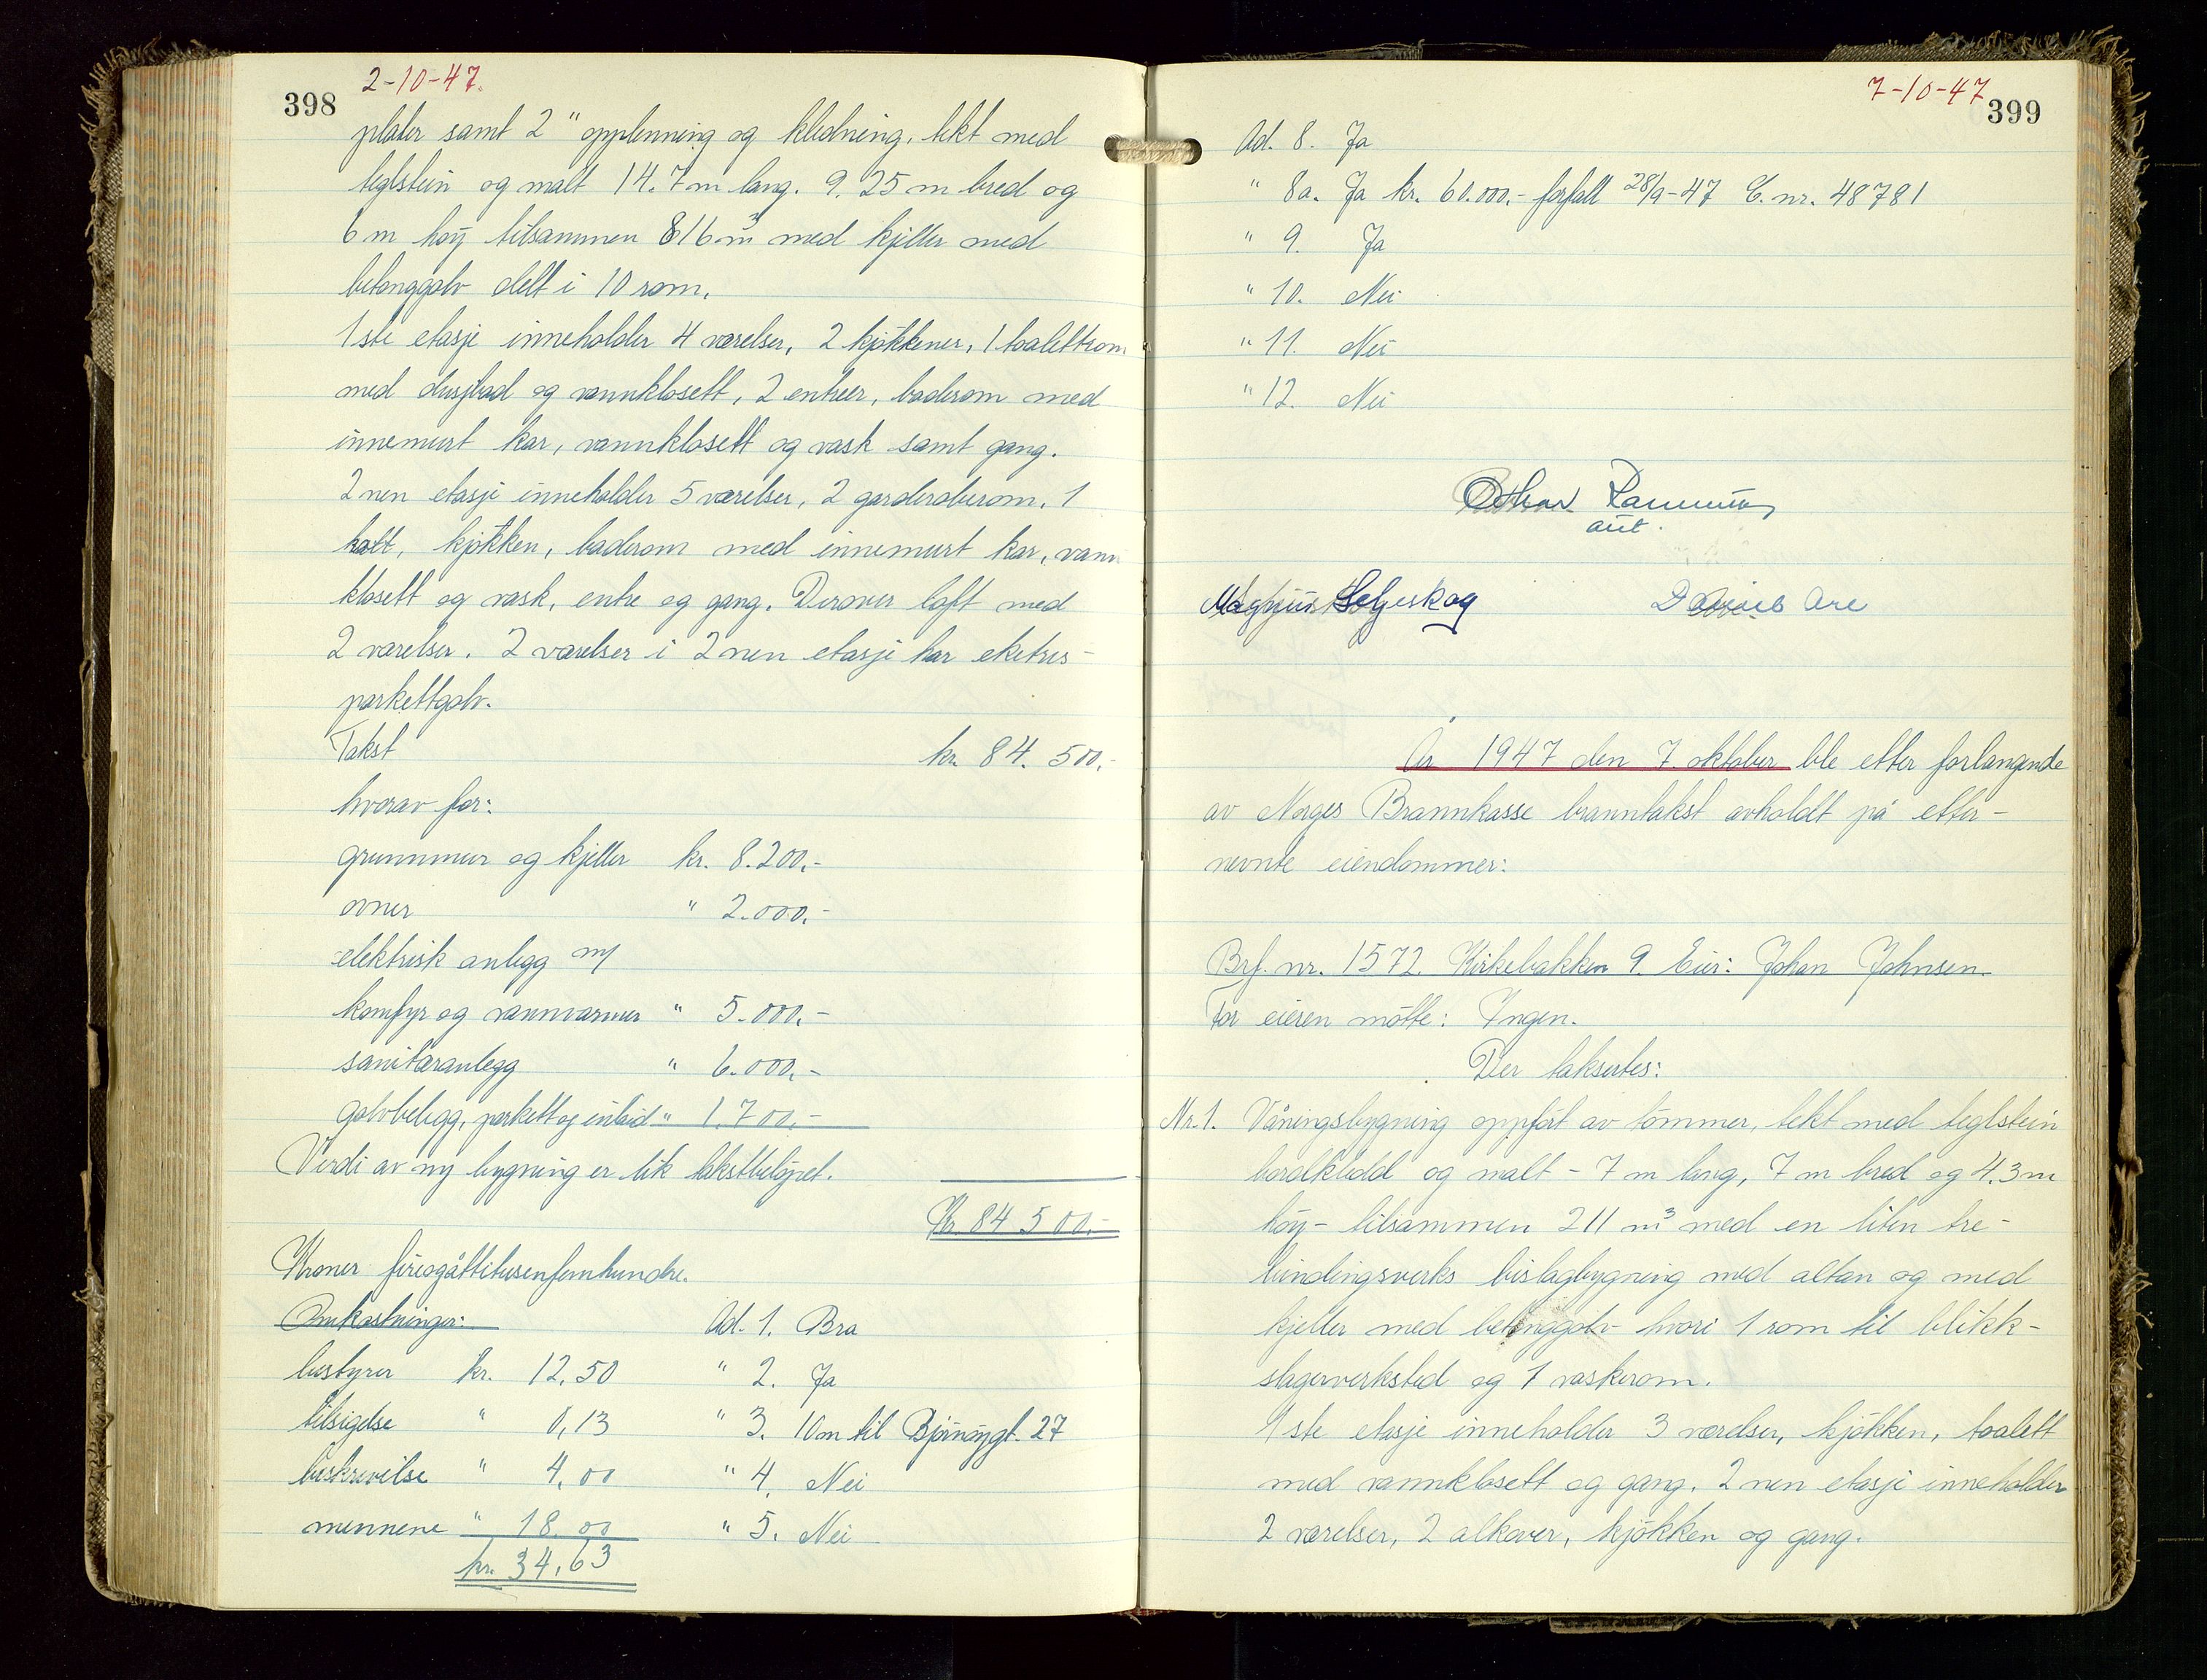 398
2-10-47.
plater samt 2" opplenning og kledning, tekt med
teglstein og malt 14.7 m lang. 9.25 m bred og
6 m høy tilsammen 816 m³ med kjeller med
betonggolv delt i 10 rom.
1ste etasje inneholder 4 værelser, 2 kjøkkener, 1 toalettrom
med dusjbad og vannklosett, 2 entreer, baderom med
innemurt kar, vannklosett og vask samt gang.
2nen etasje inneholder 5 værelser, 2 garderoberom, 1
kott, kjøkken, baderom med innemurt kar, vann
klosett og vask, entre og gang. Derover loft med
2 værelser. 2 værelser i 2nen etasje har eketres-
parkettgolv.
Takst kr. 84.500.-
hvorav for:
grunnmur og kjeller kr. 8.200.-
ovner " 2.000.-
elektrisk anlegg m/
komfyr og vannvarmer " 5.000.-
sanitæranlegg " 6.000.-
golvbelegg, parkett og inlaid " 1.700.-
Verdi av ny bygning er lik takstbeløpet.
Kr. 84500.-
Kroner fireogåttitusenfemhundre.
Omkostninger: Ad. 1. Bra
bestyrer kr. 12,50 " 2. Ja
tilsigelse " 0,13 " 3. 10 m til Bjørnøygt. 27
beskrivelse " 4,00 " 4. Nei
mennene " 18.00 " 5. Nei
kr. 34,63
7-10-47
399
Ad. 8. Ja
" 8a. Ja kr. 60.000.- forfalt 28/9-47 C. nr. 48781
" 9. Ja
" 10. Nei
" 11. Nei
" 12. Nei
Othar
aut.
Magnus Seljeskog Are
År 1947 den 7. oktober ble etter forlangende
av Norges Brannkasse branntakst avholdt på etter-
nevnte eiendommer:
Brf. nr. 1572. Kirkebakken 9. Eier: Johan Johnsen
For eieren møtte: Ingen.
Der taksertes:
Nr. 1. Våningsbygning oppført av tømmer, tekt med teglstein
bordkledd og malt - 7 m lang, 7 m bred og 4.3 m
høy - tilsammen 211 m³ med en liten tre-
bindingsverks bislagbygning med altan og med
kjeller med betonggolv hvori 1 rom til blikk-
slagerverksted og 1 vaskerom.
1ste etasje inneholder 3 værelser, kjøkken, toalett
med vannklosett og gang. 2nen etasje inneholder
2 værelser, 2 alkover, kjøkken og gang.